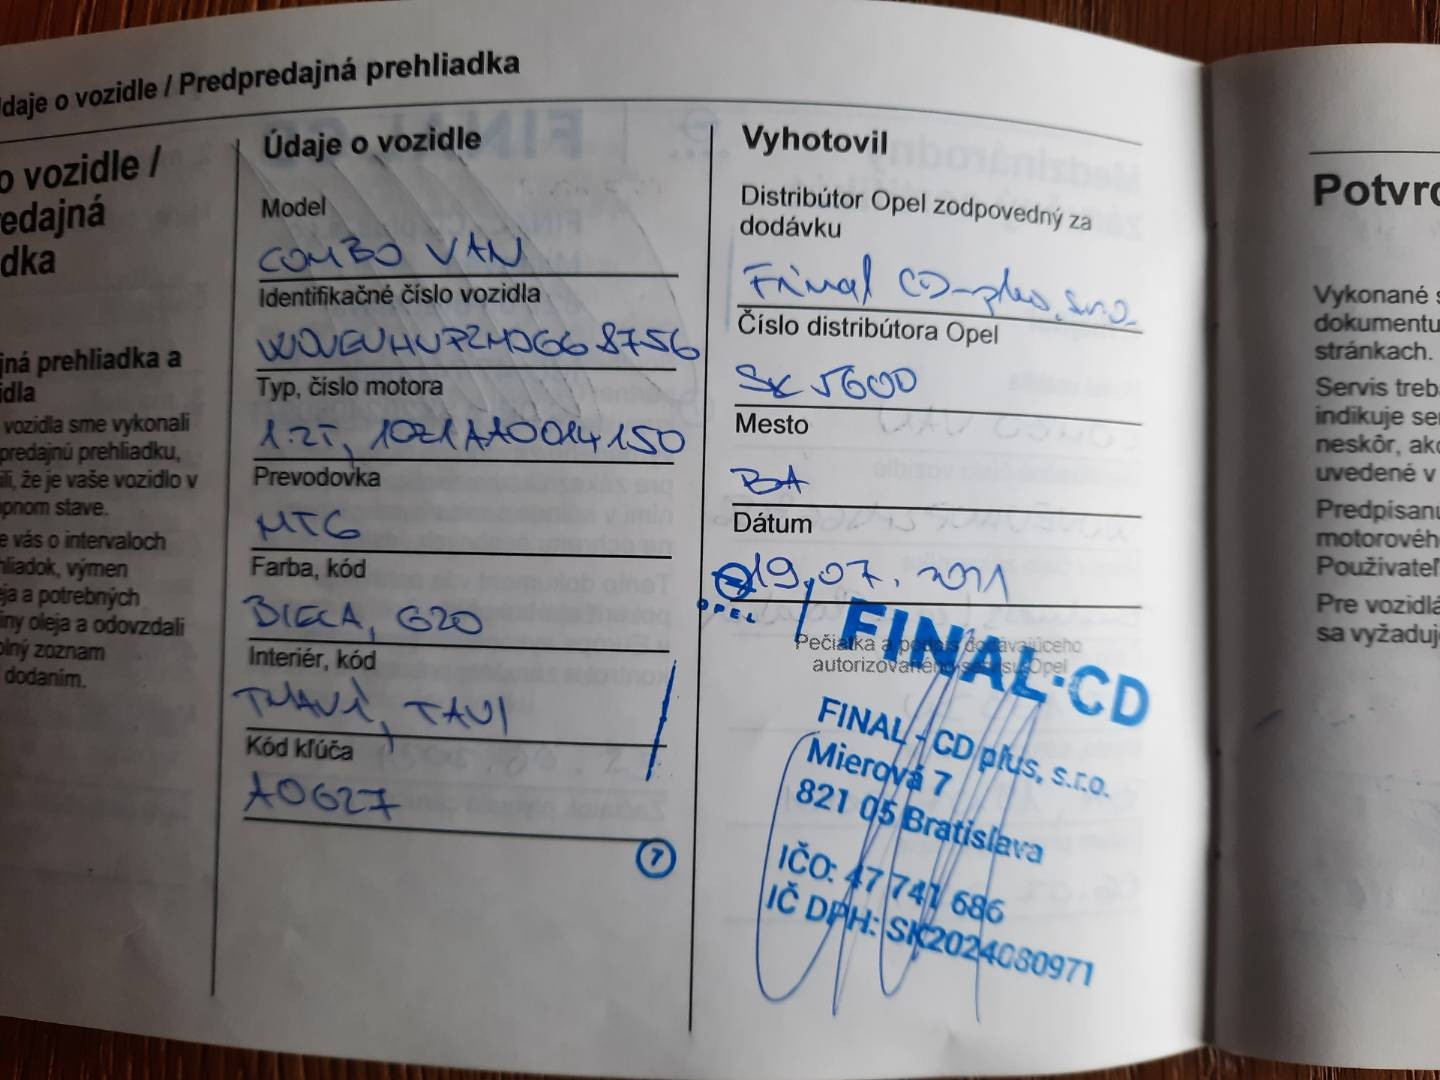 daje o vozidle / Predpredajná prehliadka
o vozidle /
redajná
dka
jná prehliadka a
idla
vozidla sme vykonali
predpredajnú prehliadku,
ili, že je vaše vozidlo v
pnom stave.
e vás o intervaloch
hliadok, výmen
eja a potrebných
iny oleja a odovzdali
olný zoznam
dodaním.
Údaje o vozidle
Model
COMBO VAN
Identifikačné číslo vozidla
Typ, číslo motora
1.2T, 1021AA0014150
Prevodovka
MT6
Farba, kód
BIELA, G20
Interiér, kód
TMAVÝ, TAVI
Kód kľúča
A0627
7
Vyhotovil
Distribútor Opel zodpovedný za
dodávku
Final CD-plus, s.r.o.
Číslo distribútora Opel
SK 5600
Mesto
BA
Dátum
19.07.2021
OPEL
FINAL-CD
Pečiatka a podpis dodávajúceho
autorizovaného servisu Opel
FINAL - CD plus, s.r.o.
Mierová 7
821 05 Bratislava
IČO: 47 741 686
IČ DPH: SK2024080971
Potvrd
Vykonané s
dokumentu
stránkach.
Servis treb
indikuje se
neskôr, ako
uvedené v
Predpísanú
motorovéh
Používateľ
Pre vozidlá
sa vyžaduj